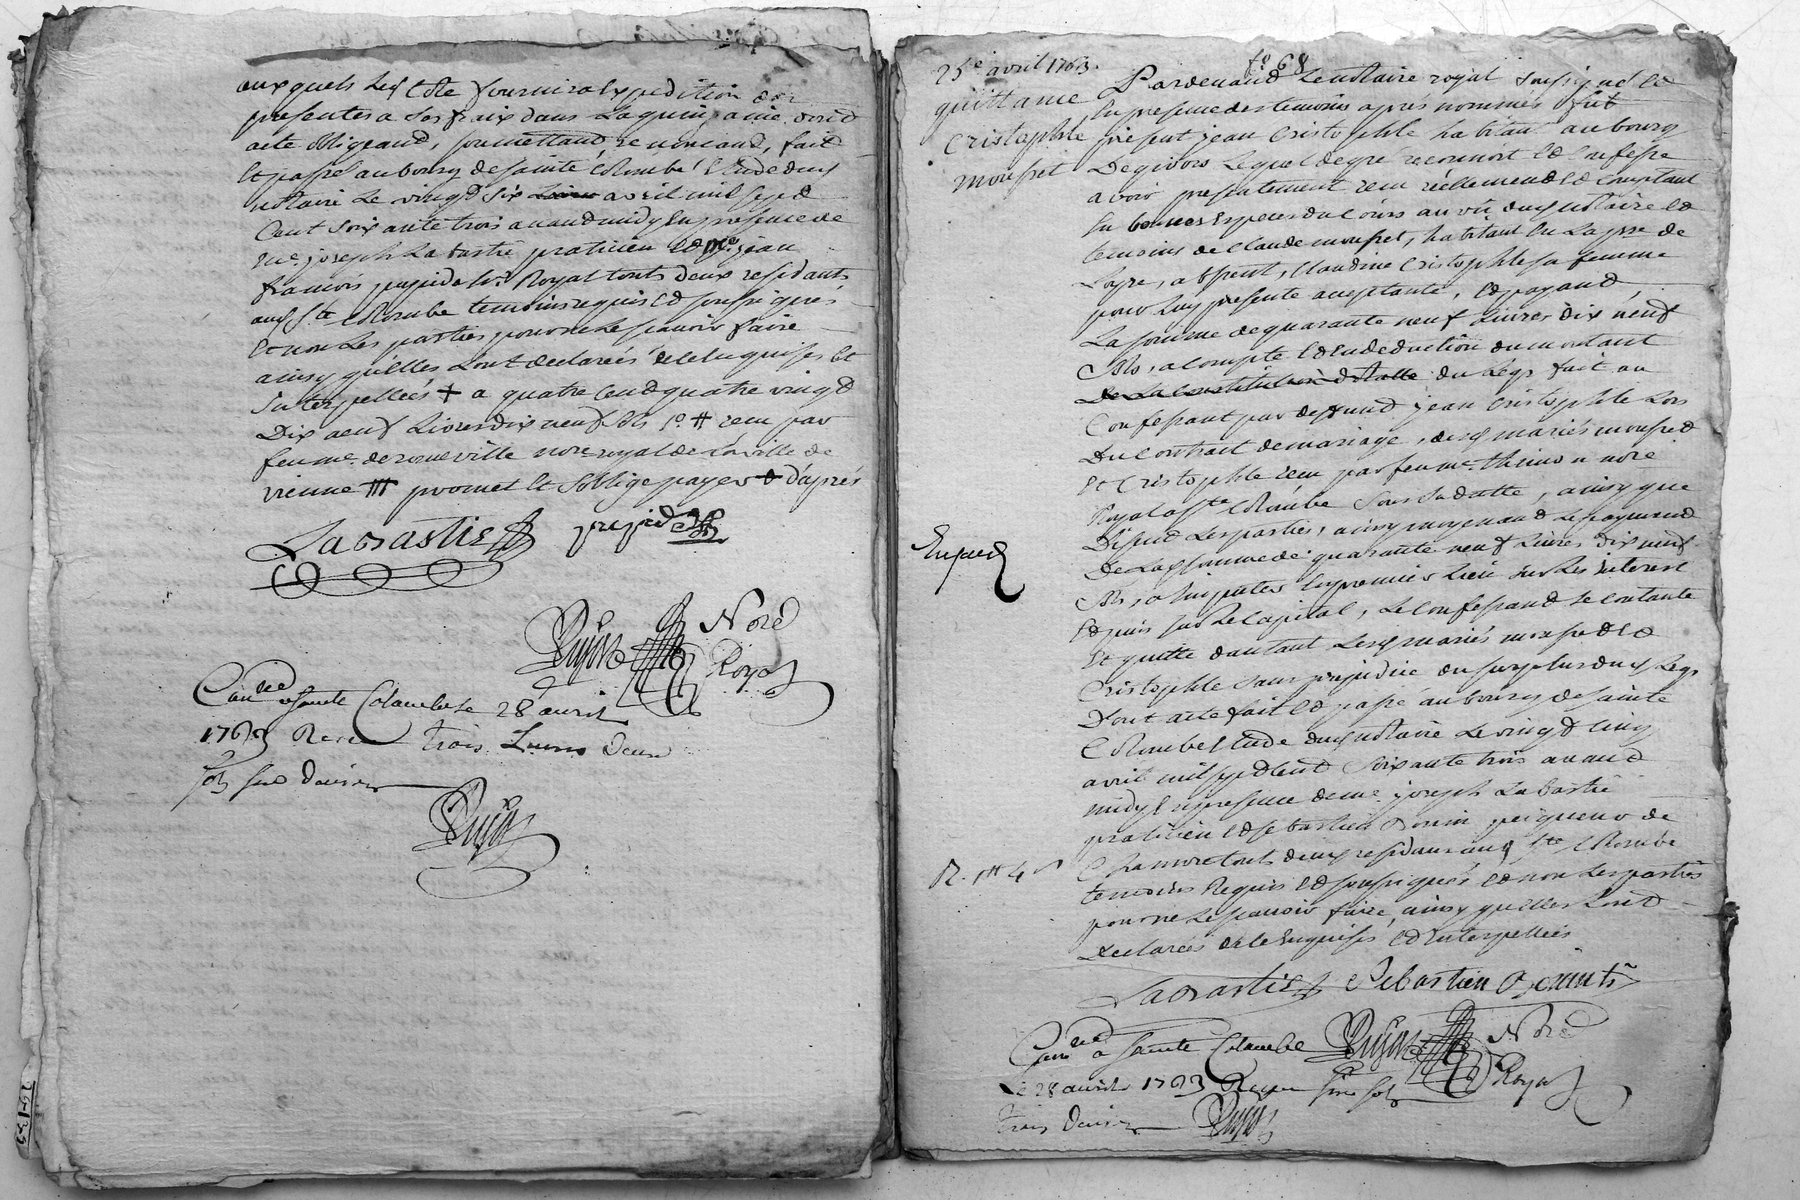 auxquels led Cristophle fournira Expedition des
presentes a ses fraix dans La quinzaine. dont
acte obligeand, soumettand, renoncand, fait
Et passé au bourg de sainte Colombe Etude dud
notaire Le vingt six avril mil sept
Cent soixante trois avand midy En presence de
me. joseph Labastie praticien Et me. jean
francois Royal touts deux residants
aud Ste Colombe temoins requis Et soussignés
Et non Les parties pour ne Le scavoir faire
ainsy qu'elles L'ont declarées de ce Enquises Et
interpellées + a quatre cend quatre vingt
Dix neuf Livres dix neuf sols recu par
feu me. de rouville nore royal de La ville de
vienne promet Et soblige payer d'après
Labastie
Nore
Royal
Con.lé a Sainte Colombe le 28 avril
1763 Recu trois Livres Deux
sols six Deniers
25e avril 1763.
fo 68
quittance
Cristophle
mousset
Pardevand Le notaire royal soussigné Et
En presence des temoins apres nommés fut
present jean Cristophle habitant au bourg
De givors Lequel de gré reconnoit Et Confesse
avoir presentement receu réellement Et comptant
En bonnes Especes du Cours au vû dud notaire Et
temoins de Claude mousset, habitant En La psse de
Loyre, absent, Claudine Cristophle sa femme
pour Luy presente acceptante, Et payand,
La somme de quarante neuf Livres dix neuf
sols, a compte Et En deduction du montant
du Légs fait au
Confessant par defund jean Cristophle Lors
Du Contrat de mariage, desd mariés mousset
Et Cristophle receu par feu me. thimon nore
Royal a Ste Colombe sous sa datte, ainsy que
Disend Les parties, ainsy moyenand Le payement
De La somme de quarante neuf Livres dix neuf
sols, a imputer En premier Lieu sur Les interest
Et puis sur Le Capital, Le Confessand se contante
Et quitte d'autant Lesd mariés mousset Et
Cristophle sans prejudice du surplus dud Legs
Dont acte fait Et passé au bourg de sainte
Colombe Etude dud notaire Le vingt cinq
avril mil sept Cend soixante trois avand
midy En presence de me. joseph Labastie
praticien Et sebastien peigneur de
Chanvre touts deux residans aud Ste Colombe
temoins Requis Et soussignés Et non Les parties
pour ne Le scavoir faire, ainsy qu'elles L'ont
Declarées de ce Enquises Et interpellées
Labastie Sebastien
Nore
Royal
Con.lé a Sainte Colombe
Le 28 avril 1763 Recu six sols
trois Deniers